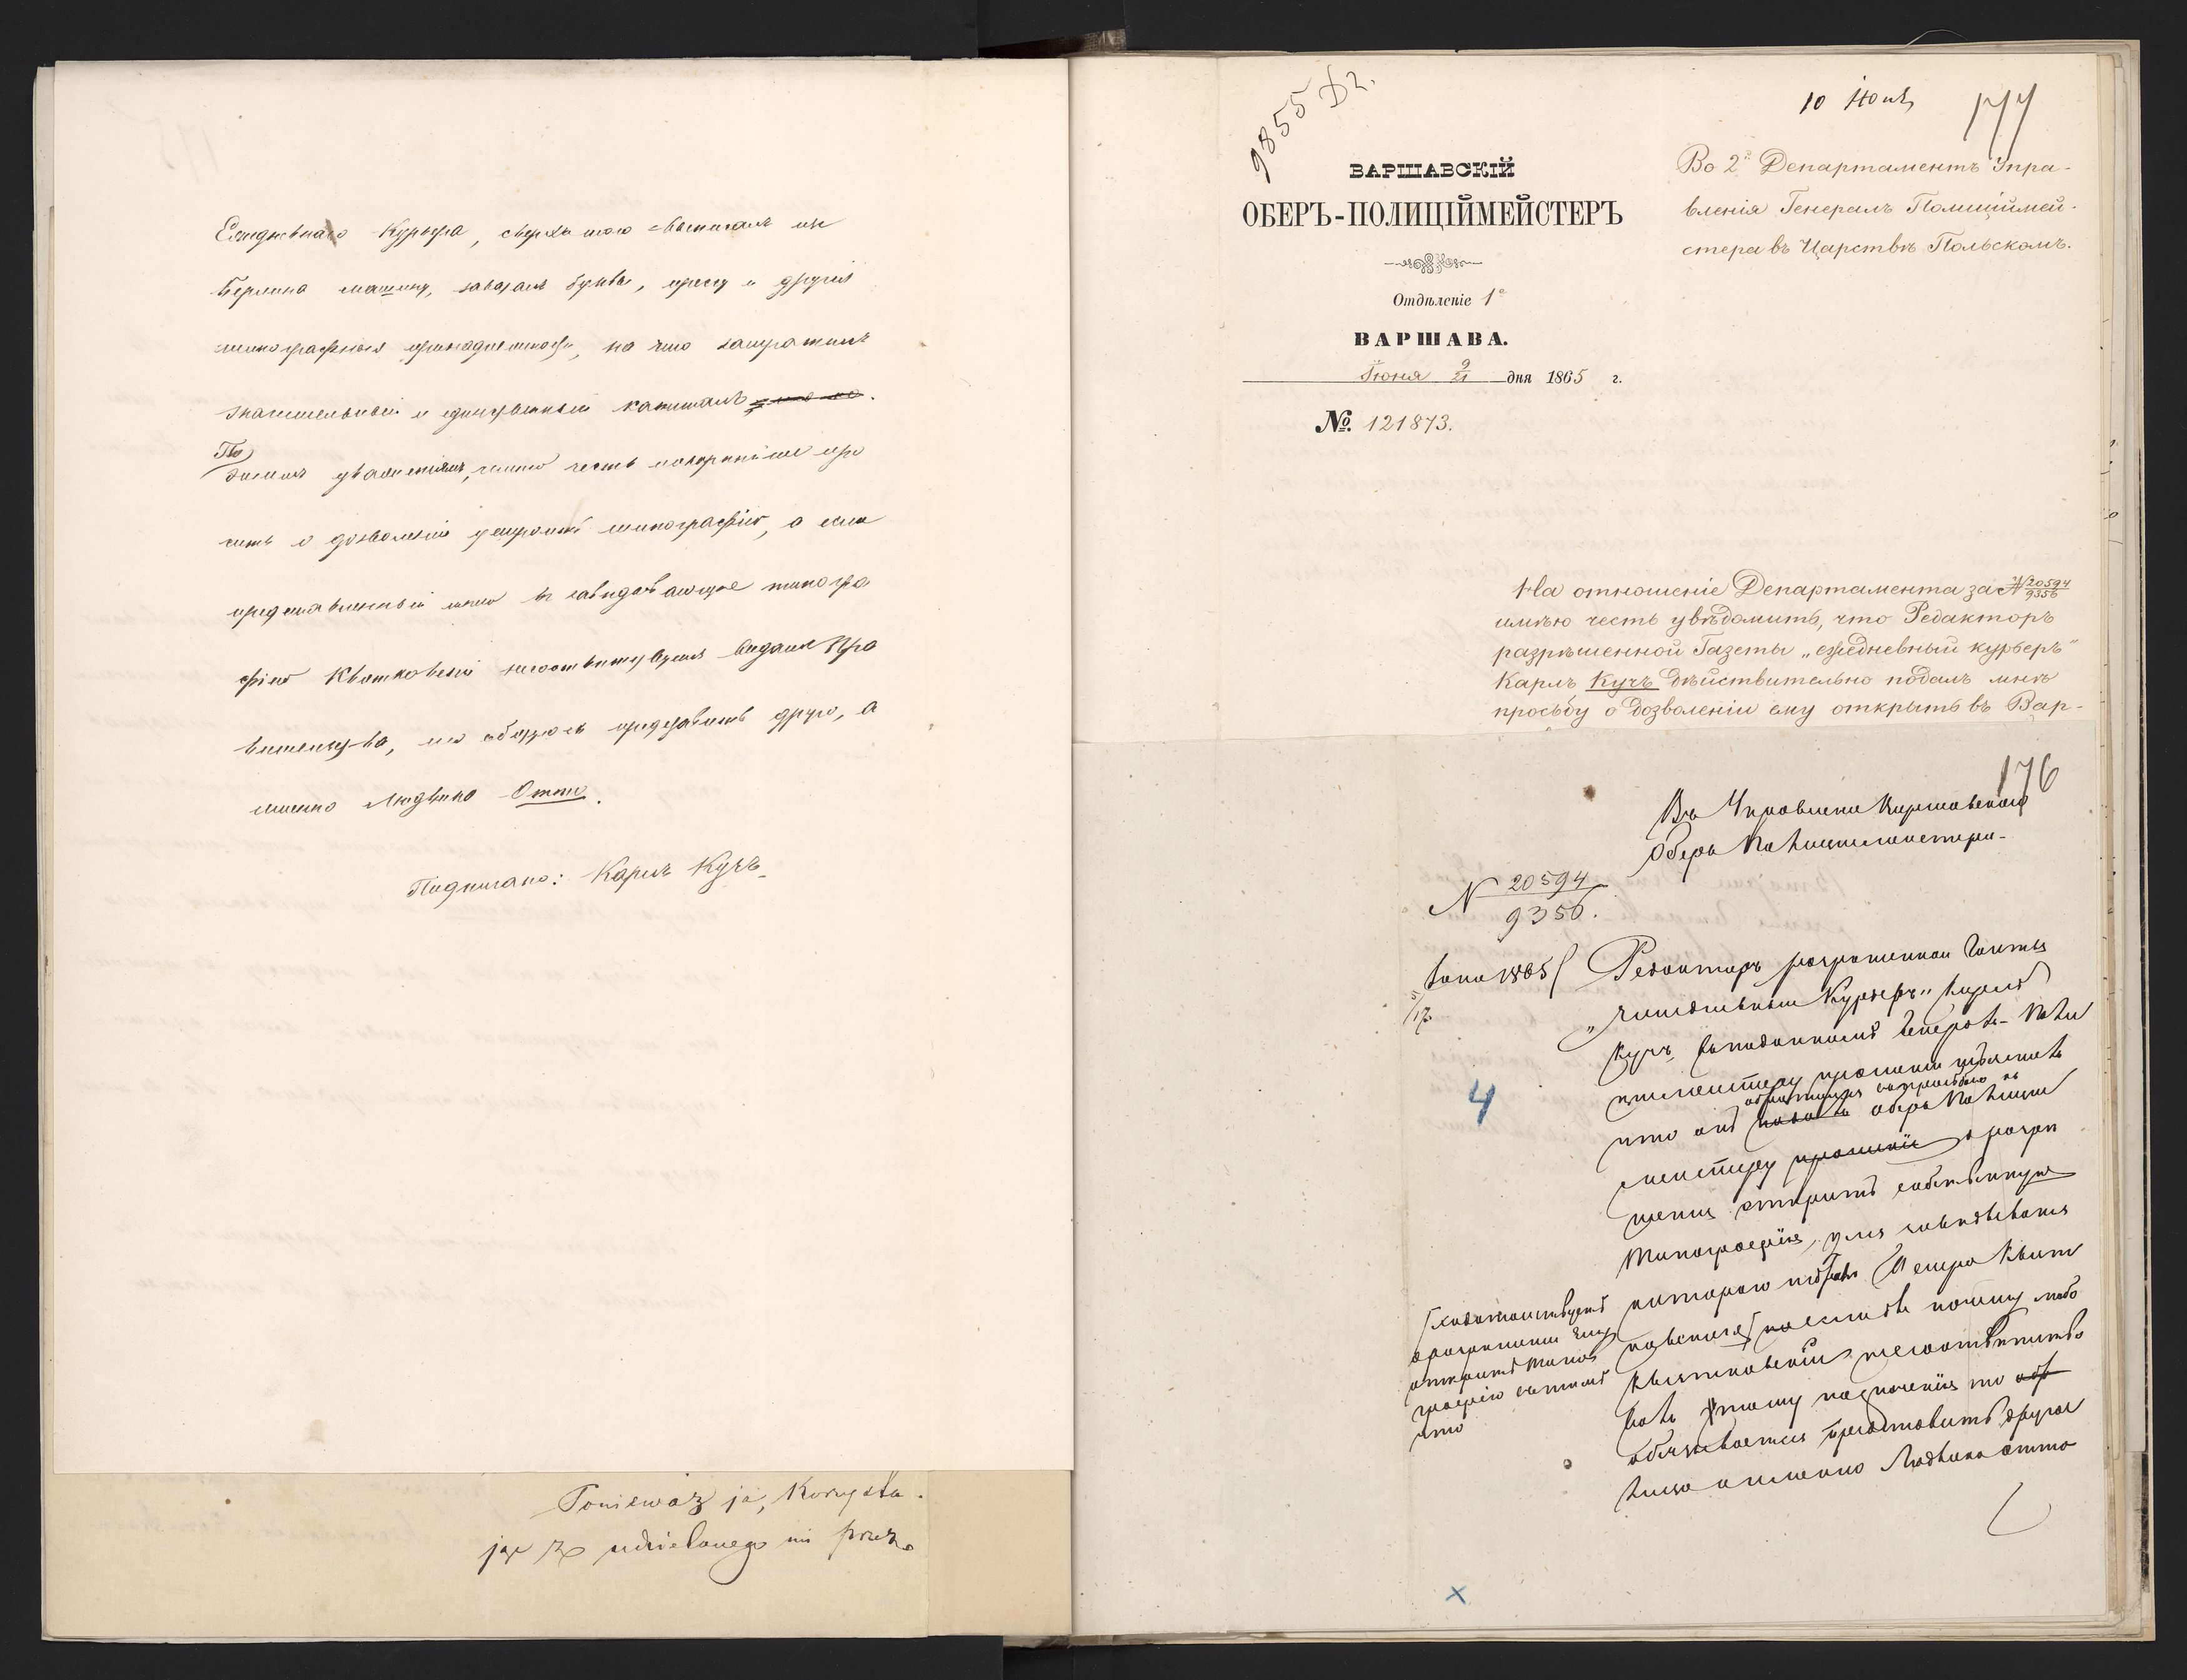 Ежедневнаго Курьера, сверхъ того выписалъ изъ
Берлина машину, заказалъ буквы, прессу и другія
типографскія принадлежности, на что затратилъ
значительный и единственный капиталъ
По
этимъ уваженіямъ, имѣю честь покорнѣйше про
сить о дозволеніи устроить типографію, а если
представленный мною въ завѣдывающіе типогра
фіею Квятковскій
то обязуюсь представить друго, а
именно Людвика Отто.
Подписано: Карлъ Кучъ.
Ponieważ ja,
jąc ze udzielonego mi przez
9855 Д2.
10 Іюня
177
ВАРШАВСКІЙ
ОБЕРЪ-ПОЛИЦІЙМЕЙСТЕРЪ
Отдѣленіе 1е
ВАРШАВА.
Іюня 9/21 дня 1865 г.
№. 121873.
Во 2й Департаментъ Упра-
вленія Генералъ Полиціймей-
стера въ Царствѣ Польскомъ.
На отношеніе Департамента за № 20594/9356
имѣю честь увѣдомить, что Редакторъ
разрѣшенной Газеты „ежедневный курьеръ"
Карлъ Кучъ дѣйствительно подалъ мнѣ
просьбу о дозволеніи ему открыть въ Вар-
176
Въ Управленіе Варшавскаго
Оберъ Полиціймейстера
N 20594/9356.
Іюня 1865
5/17.
Редакторъ разрѣшенной Газеты
„Ежедневный Курьеръ" Карлъ
Кучъ, въ поданномъ Генералъ-Поли
ціймейстеру прошеніи объясняетъ
обратился съ просьбою къ
что онъ подалъ Оберъ Полицій
мейстеру прошеніе о разрѣ
шеніи открыть собственную
типографію, для завѣдыванія
которою избралъ Петра Квят
ковскаго, если бы почему либо
Квятковскій не соотвѣтство
валъ этому назначенію то обя
обязывается представить другое
лицо а именно Людвика Отто
ходатайствуетъ
о разрѣшеніи ему
открыть типо
графію съ тѣмъ
что
4
x